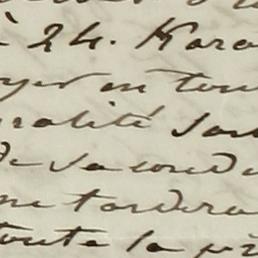 à 24. Kara
yer en tou
ralité san
de sa cond
ne tardera
toute la pr